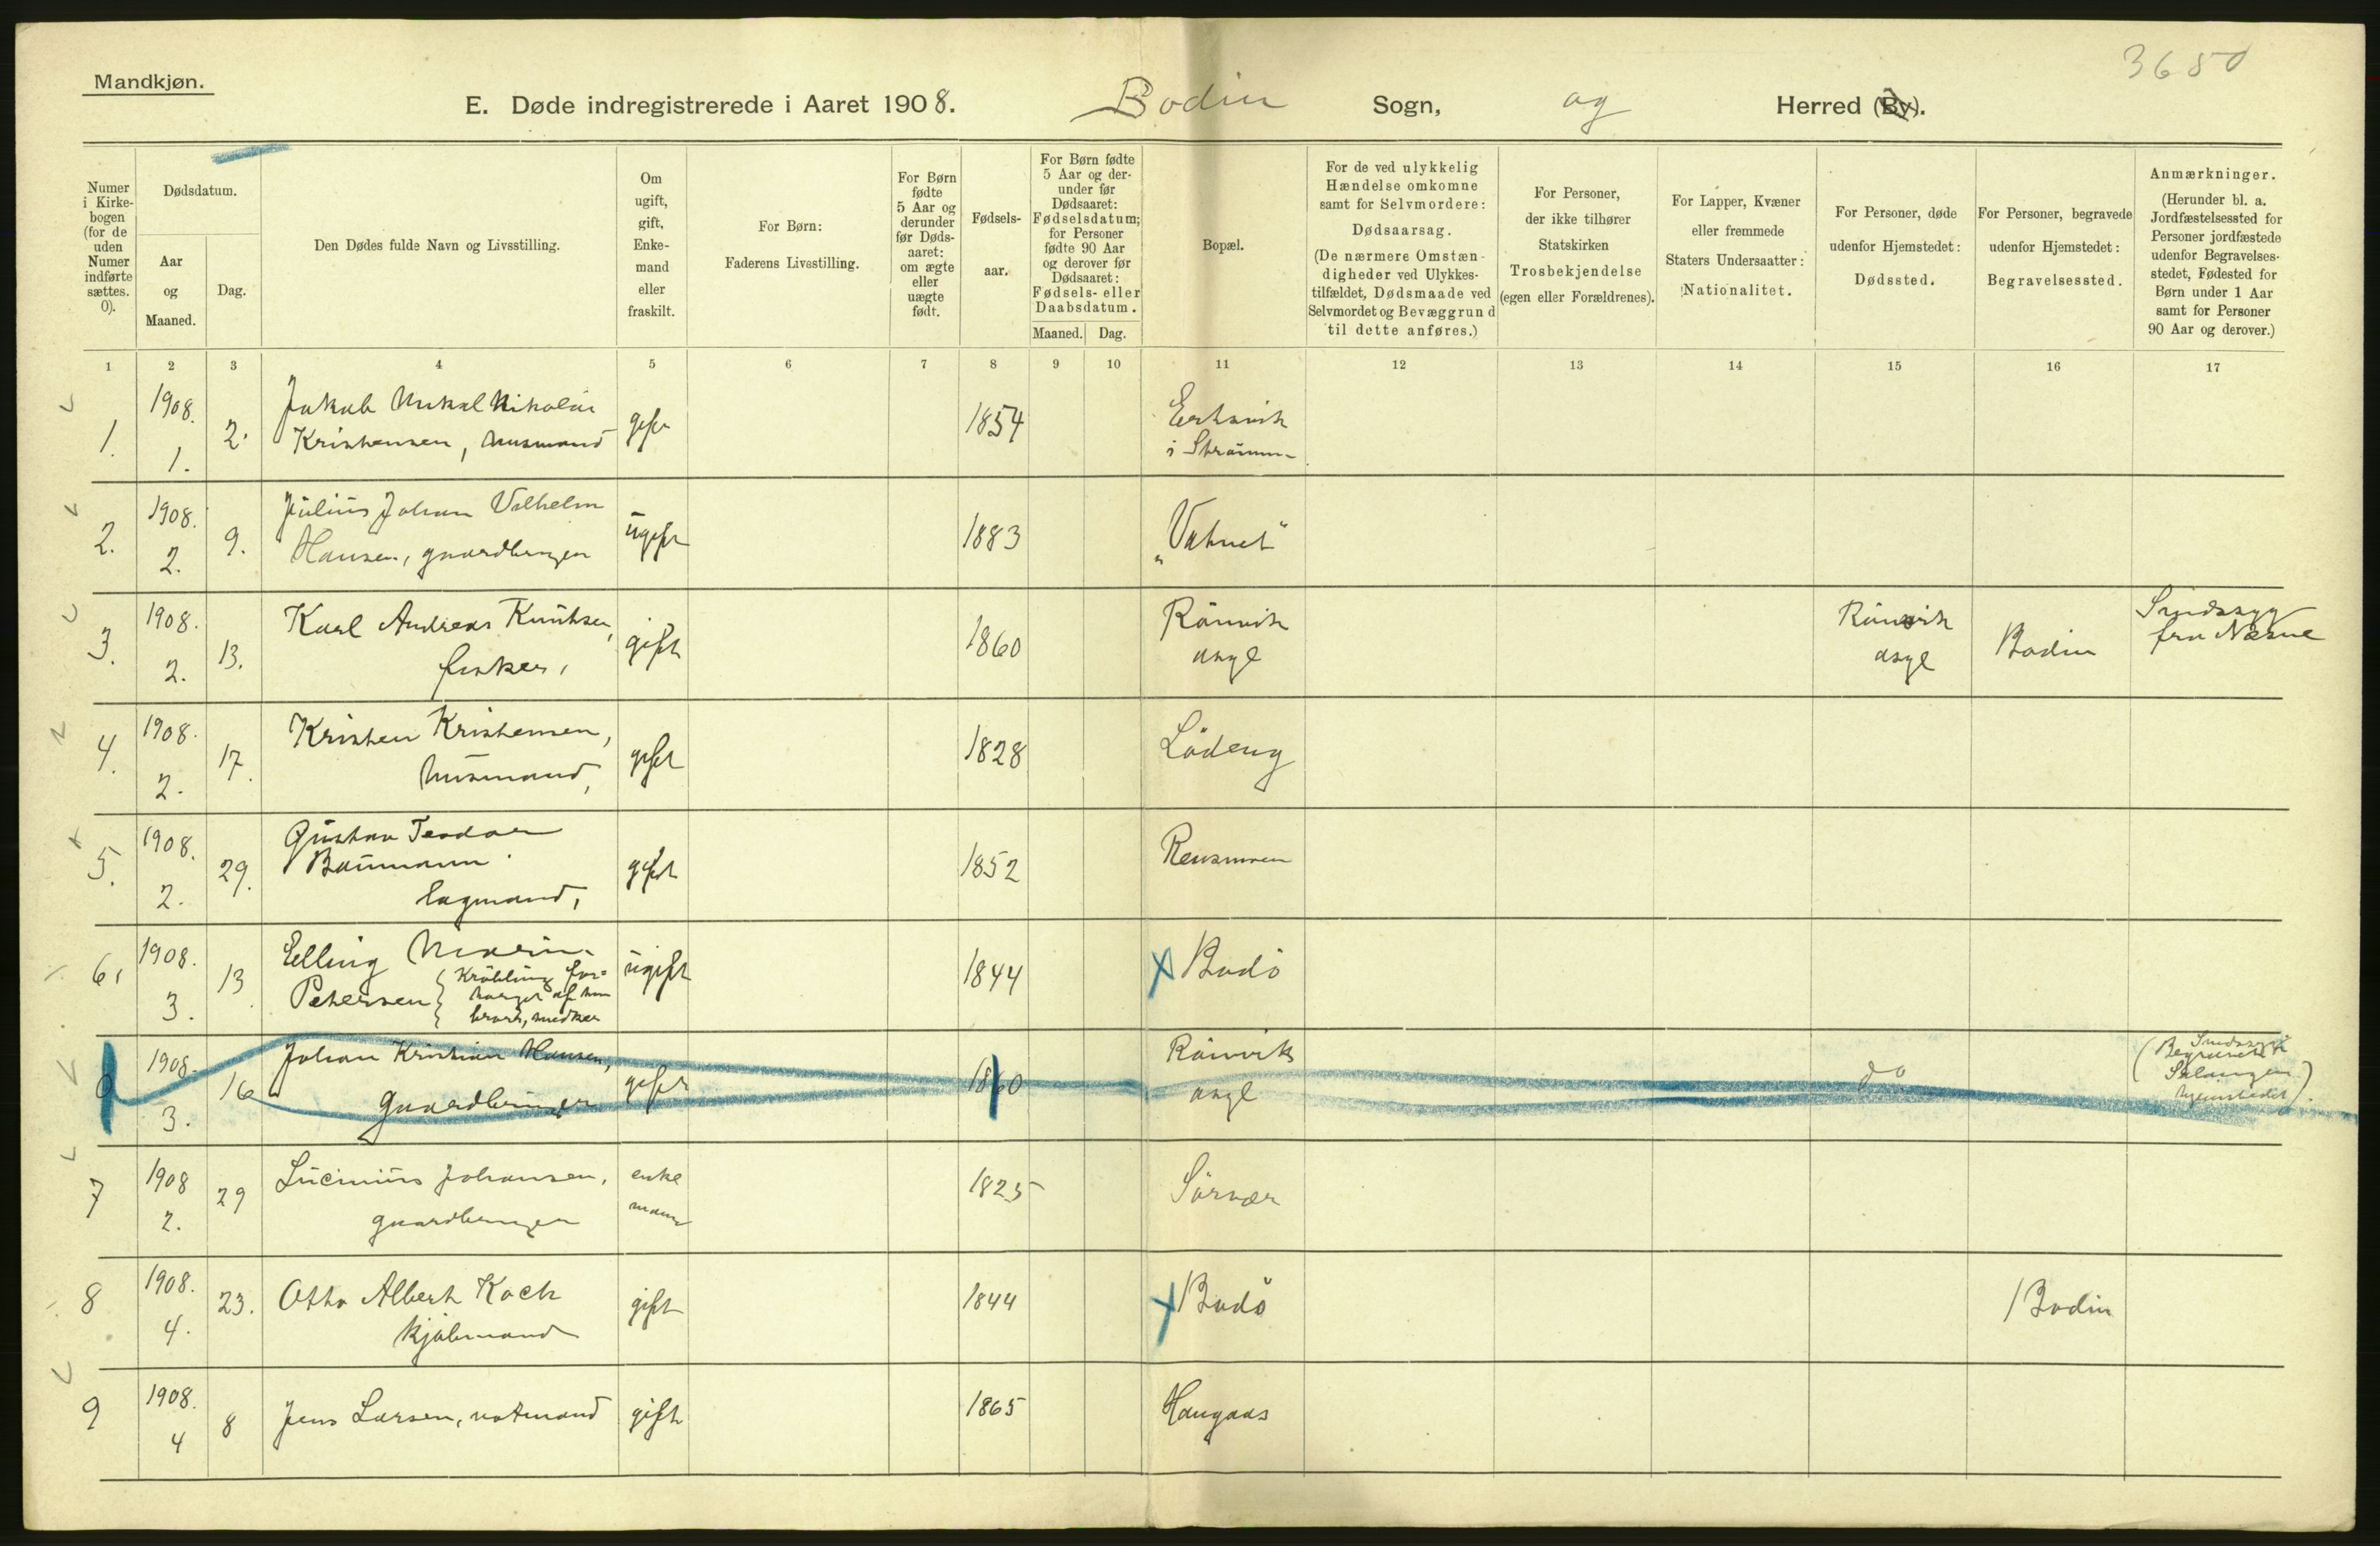 3650
Mandkjøn.
E. Døde indregistrerede i Aaret 1908. Bodin Sogn, og Herred (By).
Numer
i Kirke-
bogen
(for de
uden
Numer
indførte
sættes.
0).
Dødsdatum.
Aar
og
Maaned.
Dag.
Den Dødes fulde Navn og Livsstilling.
Om
ugift,
gift,
Enke-
mand
eller
fraskilt.
For Børn:
Faderens Livsstilling.
For Børn
fødte
5 Aar og
derunder
før Døds-
aaret:
om ægte
eller
uægte
født.
Fødsels-
aar.
For Børn fødte
5 Aar og der-
under før
Dødsaaret:
Fødselsdatum;
for Personer
fødte 90 Aar
og derover før
Dødsaaret:
Fødsels- eller
Daabsdatum.
Maaned. Dag.
Bopæl.
For de ved ulykkelig
Hændelse omkomne
samt for Selvmordere:
Dødsaarsag.
(De nærmere Omstæn-
digheder ved Ulykkes-
tilfældet, Dødsmaade ved
Selvmordet og Bevæggrund
til dette anføres.)
For Personer,
der ikke tilhører
Statskirken
Trosbekjendelse
(egen eller Forældrenes).
For Lapper, Kvæner
eller fremmede
Staters Undersaatter:
Nationalitet.
For Personer, døde
udenfor Hjemstedet:
Dødssted.
For Personer, begravede
udenfor Hjemstedet:
Begravelsessted.
Anmærkninger.
(Herunder bl. a.
Jordfæstelsessted for
Personer jordfæstede
udenfor Begravelses-
stedet, Fødested for
Børn under 1 Aar
samt for Personer
90 Aar og derover.)
1 2 3 4 5 6 7 8 9 10 11 12 13 14 15 16 17
1. 1908. 1. 2. Jakob Mikal Nikolai
Kristensen, husmand gift 1854
i Strømmen
2. 1908. 2. 9. Julius Johan Vilhelm
Hansen, gaardbruger ugift 1883 "Vatnet"
3. 1908. 2. 13. Karl Andreas Knutsen,
fisker, gift 1860 Rönvik
asyl Rönvik
asyl Bodin Sindssyg
fra Næsne
4. 1908. 2. 17. Kristen Kristensen,
husmand, gift 1828 Lödeng
5. 1908. 2. 29. Gustav Teodor
Baumann
lagmand, gift 1852
6. 1908. 3. 13. Elling Marin
Petersen Krøbling for-
sørget af sin
bror, snedker ugift 1844 Bodö
0 1908. 3. 16 Johan Kristian Hansen,
gaardbruger gift 1860 Rönvik
asyl do (Sindssyg
Begravet i
Salangen
hjemstedet).
7 1908 2. 29 Lucinius Johansen,
gaardbruger enke
mand 1825 Sörvær
8 1908. 4. 23. Otto Albert Koch
kjöbmand gift 1844 Bodö Bodin
9 1908. 4 8 Jens Larsen, notmand gift 1865 Haugaas